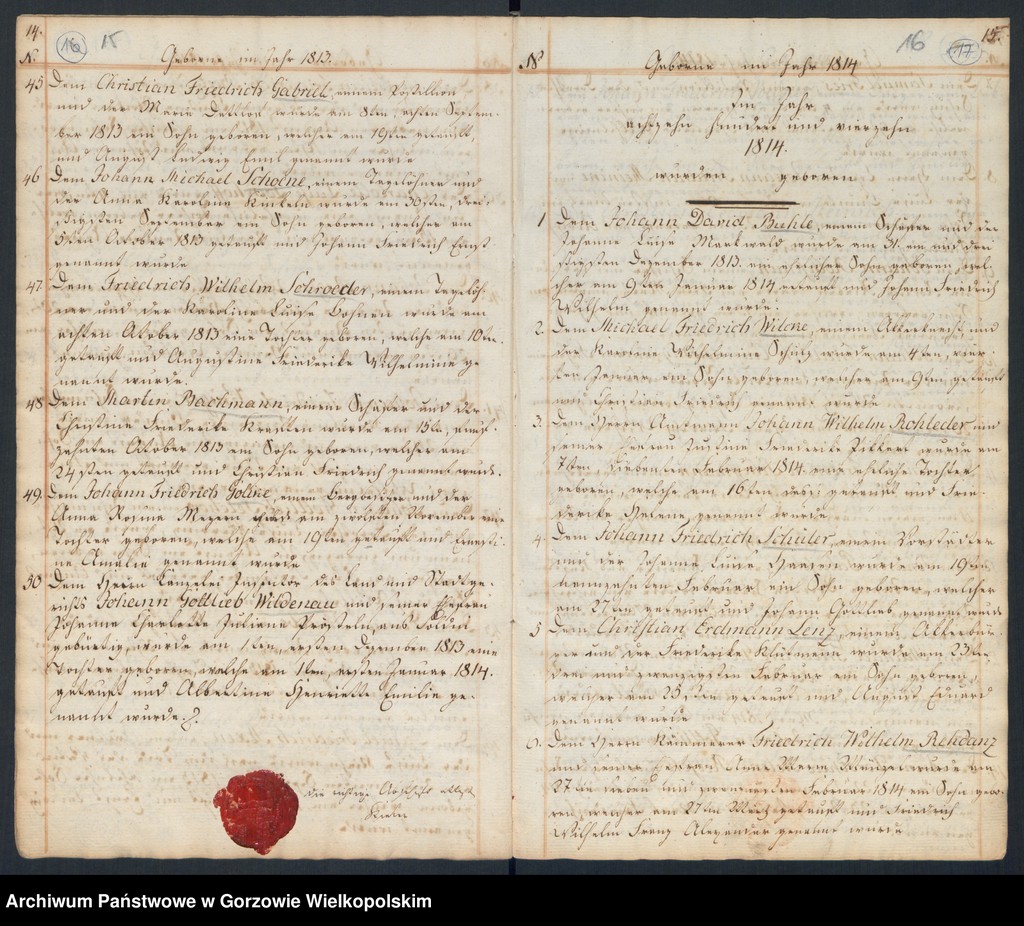 14.
16 15
N. Geborne im Jahr 1813.
45 Dem Christian Friedrich Gabriel, einem Postillion
und der Marie wurde am 8ten, achten Septem-
ber 1813 ein Sohn geboren, welcher am 19ten getauft,
und August Ludwig Emil genannt wurde
46 Dem Johann Michael Schoene, einem Tagelöhner und
der Anna Karolina wurde am 30sten, drei-
ßigsten September ein Sohn geboren, welcher am
5ten October 1813 getauft und Johann Friedrich Ernst
genannt wurde
47 Dem Friedrich Wilhelm Schroeder, einem Tagelöh-
ner und der Karoline Luise wurde am
achten October 1813 eine Tochter geboren, welche am 10ten
getauft und Augustine Friederike Wilhelmine ge-
nannt wurde.
48 Dem Martin Bachmann, einem Schäfer und der
Christine Friederike wurde am 15ten, funf-
zehnten October 1813 ein Sohn geboren, welcher am
24sten getauft und Christian Friedrich genannt wurde.
49. Dem Johann Friedrich einem und der
Anna Rosina am zwoelften November eine
Tochter geboren, welche am 19ten getauft und Ernesti-
ne Amalia genannt wurde
50 Dem Herrn Kanzelei Inspector des Land und Stadtge-
richts Johann Gottlieb Wildenau und seiner
Johanne Charlotte Juliane aus Soldin
gebürtig, wurde am 1ten, ersten Dezember 1813 eine
Tochter geboren, welche am 1ten, ersten Januar 1814.
getauft und Albertine Henriette Emilie ge-
nannt wurde.
die richtige Abschrift
15.
16 17
N Geborne im Jahr 1814
Im Jahr
achtzehn hundert und vierzehn
1814.
wurden geboren
1 Dem Johann David Buhle, einem Schäfer und der
Johanne Luise Markwald wurde am 31. ein und drei
ßigsten Dezember 1813. ein ehelicher Sohn geboren, wel-
cher am 9ten Januar 1814 getauft und Johann Friedrich
Wilhelm genannt wurde.
2. Dem Michael Friedrich Wilcne, einem Ackerknecht und
der Karoline Wilhelmine Schütz wurde am 4ten, vier-
ten Januar ein Sohn geboren, welcher am 9ten getauft
und Christian Friedrich genannt wurde
3. Dem Herrn Amtmann Johann Wilhelm Rohleder und
seiner Justine Friederike wurde am
7ten, siebenten Februar 1814. eine eheliche Tochter
geboren, welche am 16ten getauft und Frie-
derike Helene genannt wurde
4. Dem Johann Friedrich Schüler, einem Vorstädter
und der Johanne Luise wurde am 19ten,
neunzehnten Februar ein Sohn geboren, welcher
am 27ten getauft und Johann Gottlieb genannt wurde
5 Dem Christian Erdmann Lenz, einem Ackerbür-
ger und der Friederike wurde am 23ten
drei und zwanzigsten Februar ein Sohn geboren,
welcher am 25sten getauft und August Eduard
genannt wurde
6. Dem Herrn Kämmerer Friedrich Wilhelm Rehdanz
und seiner Anne Marie wurde am
27ten sieben und zwanzigsten Februar 1814 ein Sohn gebo-
ren, welcher am 27ten März getauft und Friedrich
Wilhelm Franz Alexander genannt wurde
Archiwum Państwowe w Gorzowie Wielkopolskim